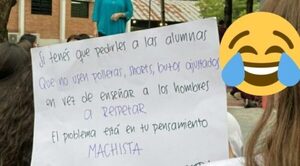 Si tenés que pedirles a las alumnas
Que no usen polleras, shorts, buzos ajustados
en vez de enseñar a los hombres
a respetar
El problema está en tu pensamiento
MACHISTA